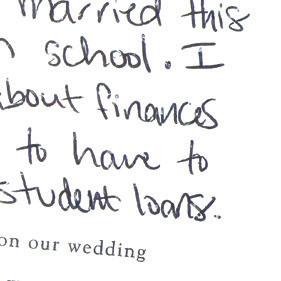 married this
school. I
about finances
to have to
student loans.
on our wedding